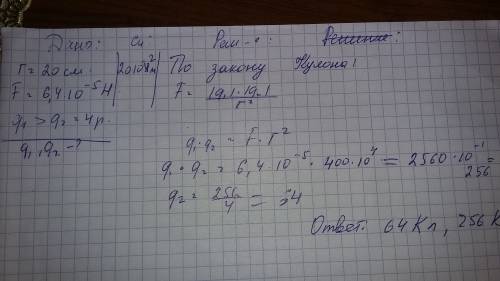 Дано: Си Реш-е: Решение:
r = 20 см. 20·10⁻² м По закону Кулона!
F = 6,4·10⁻⁵ Н F = |q₁|·|q₂| / r²
q₁ > q₂ = 4 р.
q₁, q₂ - ?
q₁·q₂ = F·r²
q₁·q₂ = 6,4·10⁻⁵ · 400·10⁴ = 2560·10⁻¹ =
256
q₂ = 256/4 = 64
Ответ: 64 Кл, 256 К